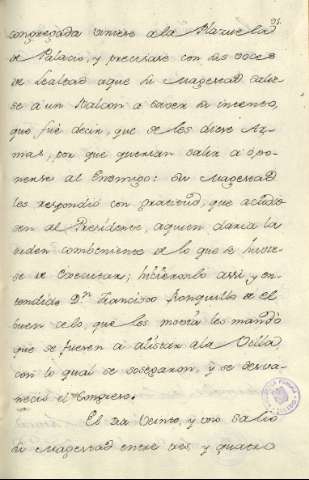 95.
congregada viniese a la Plazuela
de Palacio, y precisase con las voces
de lealtad aque su Magestad salie
se a un Balcon a saver su intento,
que fue decir, que se les diese Ar-
mas, por que querian salir a opo-
nerse al Enemigo: Su Magestad
les respondió con gratitud, que acudie
sen al Presidente, aquien daria la
orden combeniente de lo que se hicie
se de executar; hicieronlo assi y en-
tendido Dn. Francisco Ronquillo de el
buen celo, que les movia les mandó
que se fuesen a alistar a la Villa
con lo qual se sosegaron, y se desva-
neció el Congreso.
El dia Veinte, y uno salió
su Magestad entre tres y quatro